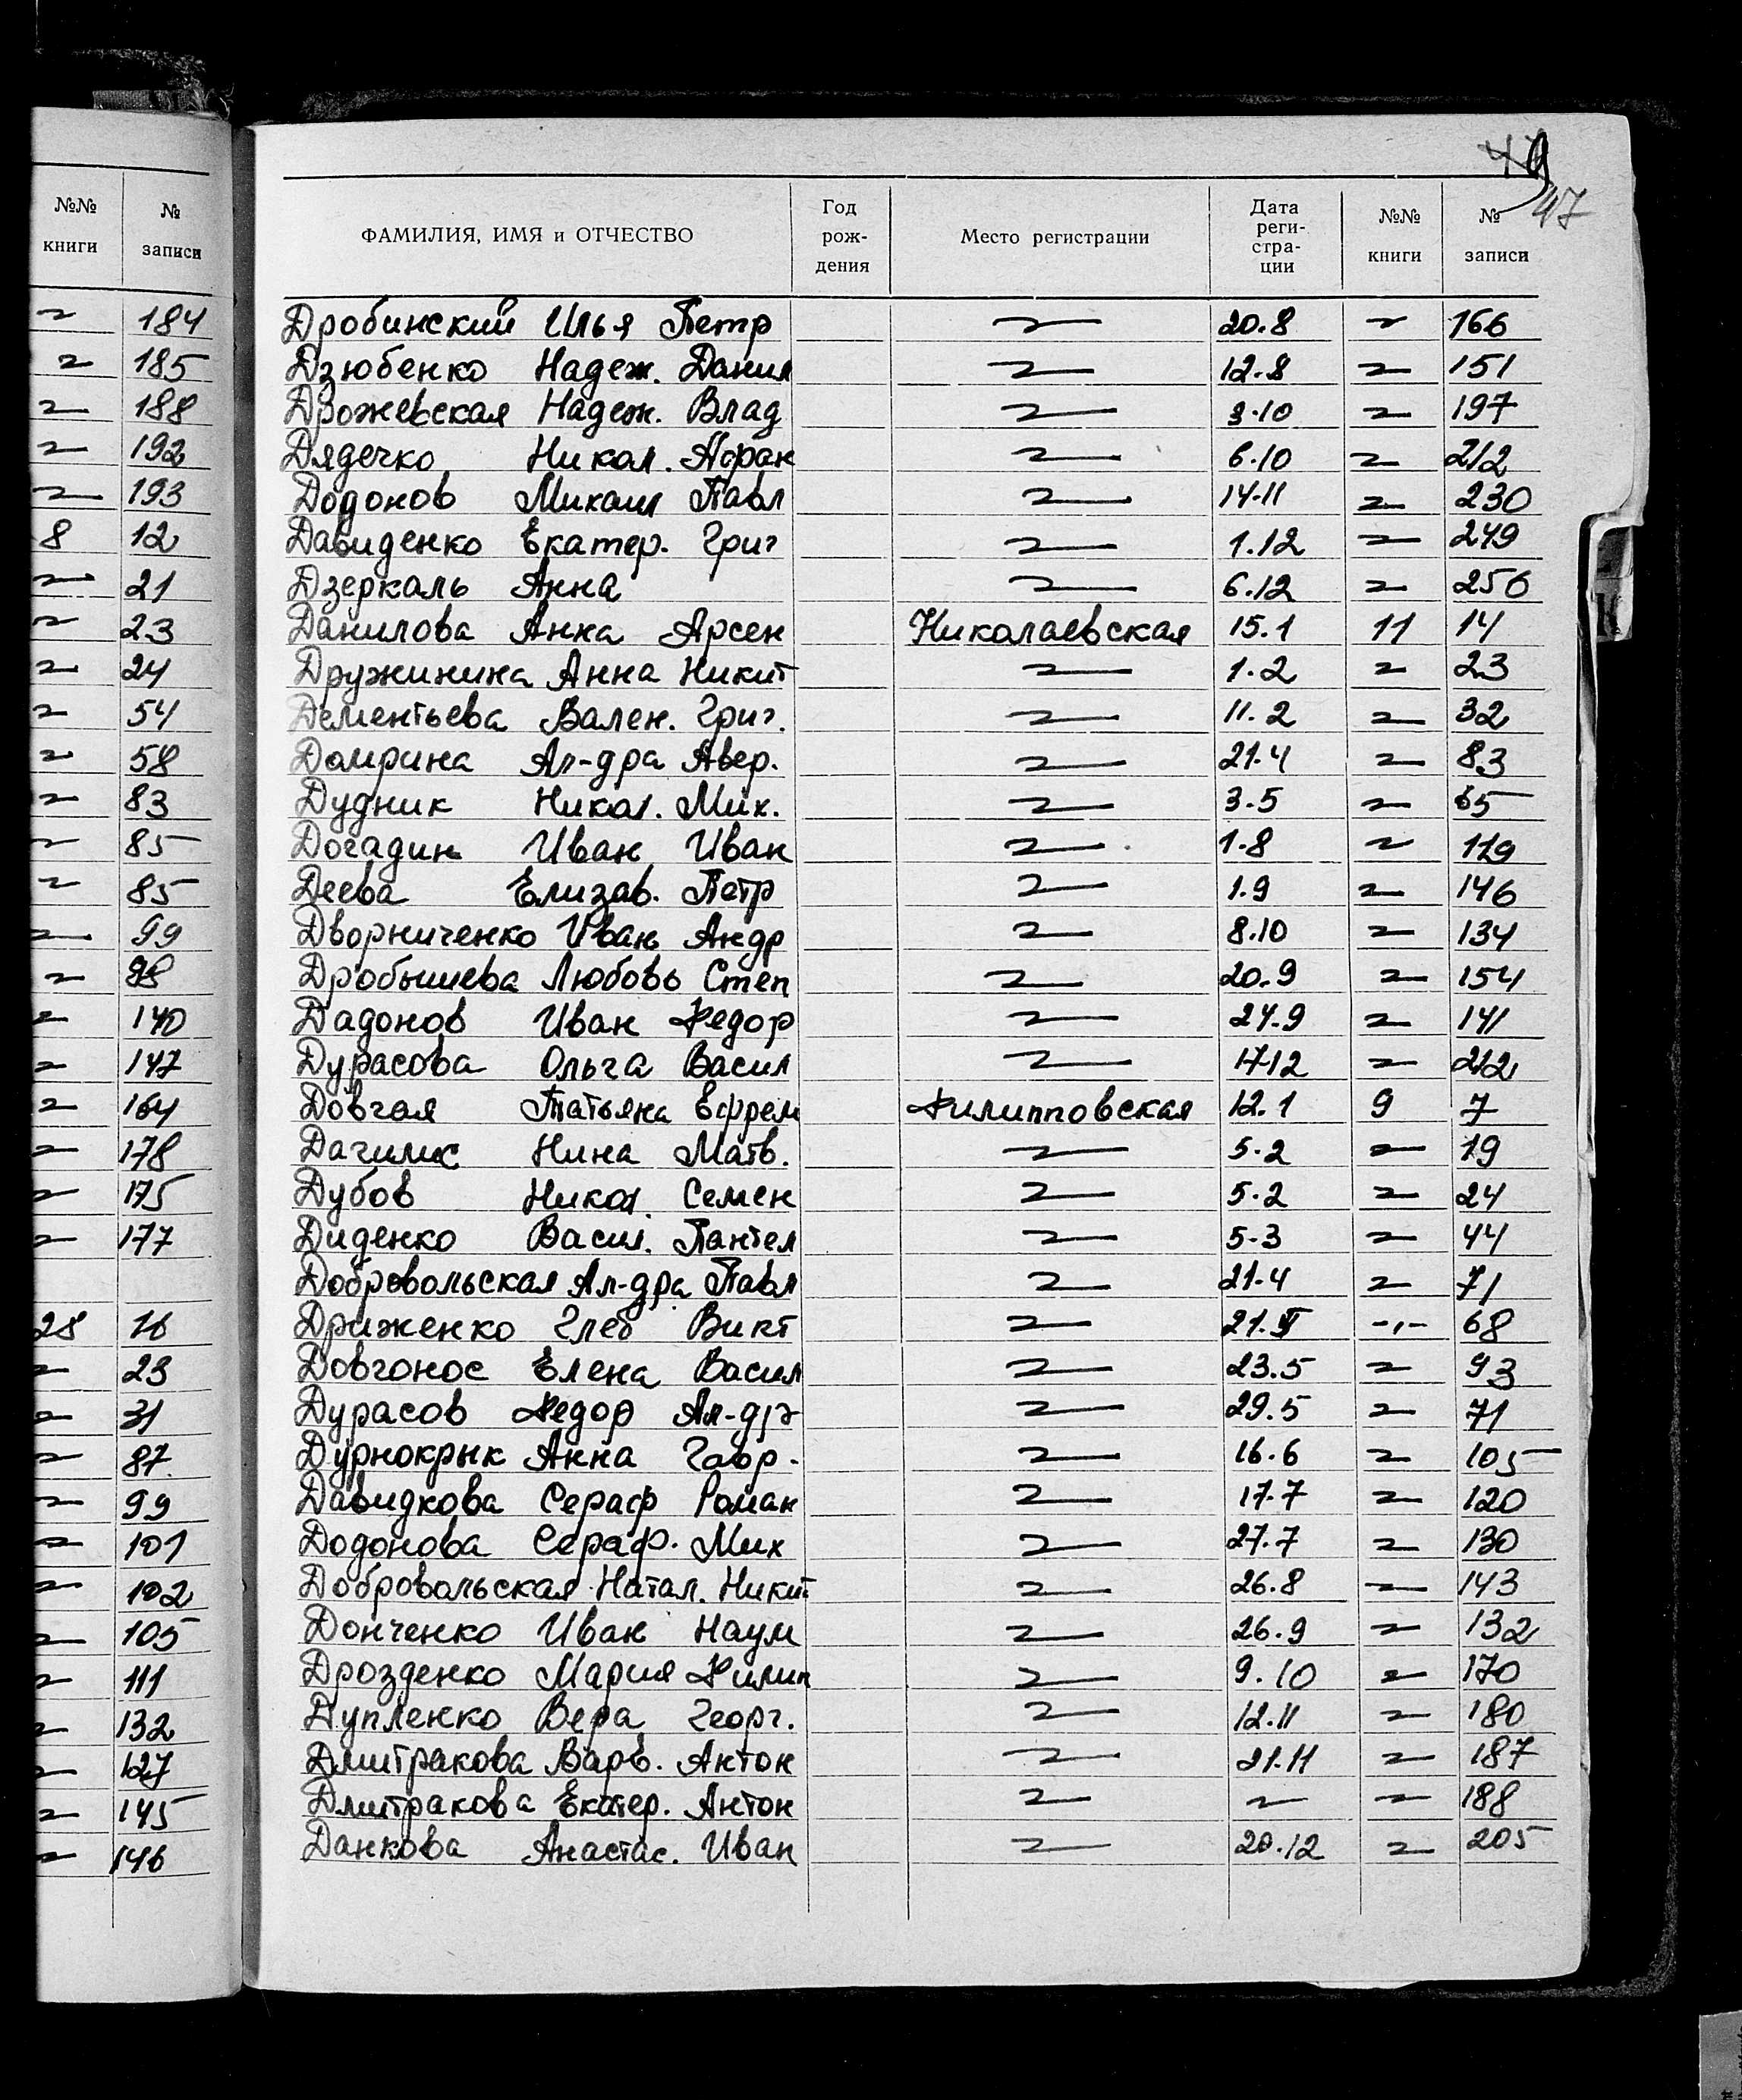 47
№№ книги № записи
184
185
188
192
193
8 12
21
23
24
54
58
83
85
85
99
98
140
147
164
178
175
177
28 16
23
31
87
99
101
102
105
111
132
127
145
146
ФАМИЛИЯ, ИМЯ и ОТЧЕСТВО Год рож- дения Место регистрации Дата реги- стра- ции №№ книги № записи
Дробинский Илья Петр 〃 20.8 〃 166
Дзюбенко Надеж. Данил 〃 12.8 〃 151
Дрожевская Надеж. Влад 〃 3.10 〃 197
Дядечко Никол. Афан 〃 6.10 〃 212
Додонов Михаил Павл 〃 14.11 〃 230
Давиденко Екатер. Григ 〃 1.12 〃 249
Дзеркаль Анна 〃 6.12 〃 256
Данилова Анна Арсен Николаевская 15.1 11 14
Дружинина Анна Никит 〃 1.2 〃 23
Дементьева Вален. Григ. 〃 11.2 〃 32
Домрина Ал-дра Авер. 〃 21.4 〃 83
Дудник Никол. Мих. 〃 3.5 〃 65
Догадин Иван Иван 〃 1.8 〃 119
Деева Елизав. Петр 〃 1.9 〃 146
Дворниченко Иван Андр 〃 8.10 〃 134
Дробышева Любовь Степ 〃 20.9 〃 154
Дадонов Иван Федор 〃 24.9 〃 141
Дурасова Ольга Васил 〃 17.12 〃 212
Довгая Татьяна Ефрем Филипповская 12.1 9 7
Дагилис Нина Матв. 〃 5.2 〃 19
Дубов Никол. Семен 〃 5.2 〃 24
Диденко Васил. Пантел 〃 5.3 〃 44
Добровольская Ал-дра Павл 〃 21.4 〃 71
Дриженко Глеб Викт 〃 -„- 68
Довгонос Елена Васил 〃 23.5 〃 93
Дурасов Федор Ал-др 〃 29.5 〃 71
Дурнокрык Анна Гавр. 〃 16.6 〃 105
Давидкова Сераф Роман 〃 17.7 〃 120
Додонова Сераф. Мих 〃 27.7 〃 130
Добровольская Натал. Никит 〃 26.8 〃 143
Донченко Иван Наум 〃 26.9 〃 132
Дрозденко Мария Филип 〃 9.10 〃 170
Дупленко Вера Георг. 〃 12.11 〃 180
Дмитракова Варв. Антон 〃 21.11 〃 187
Дмитракова Екатер. Антон 〃 〃 〃 188
Данкова Анастас. Иван 〃 20.12 〃 205